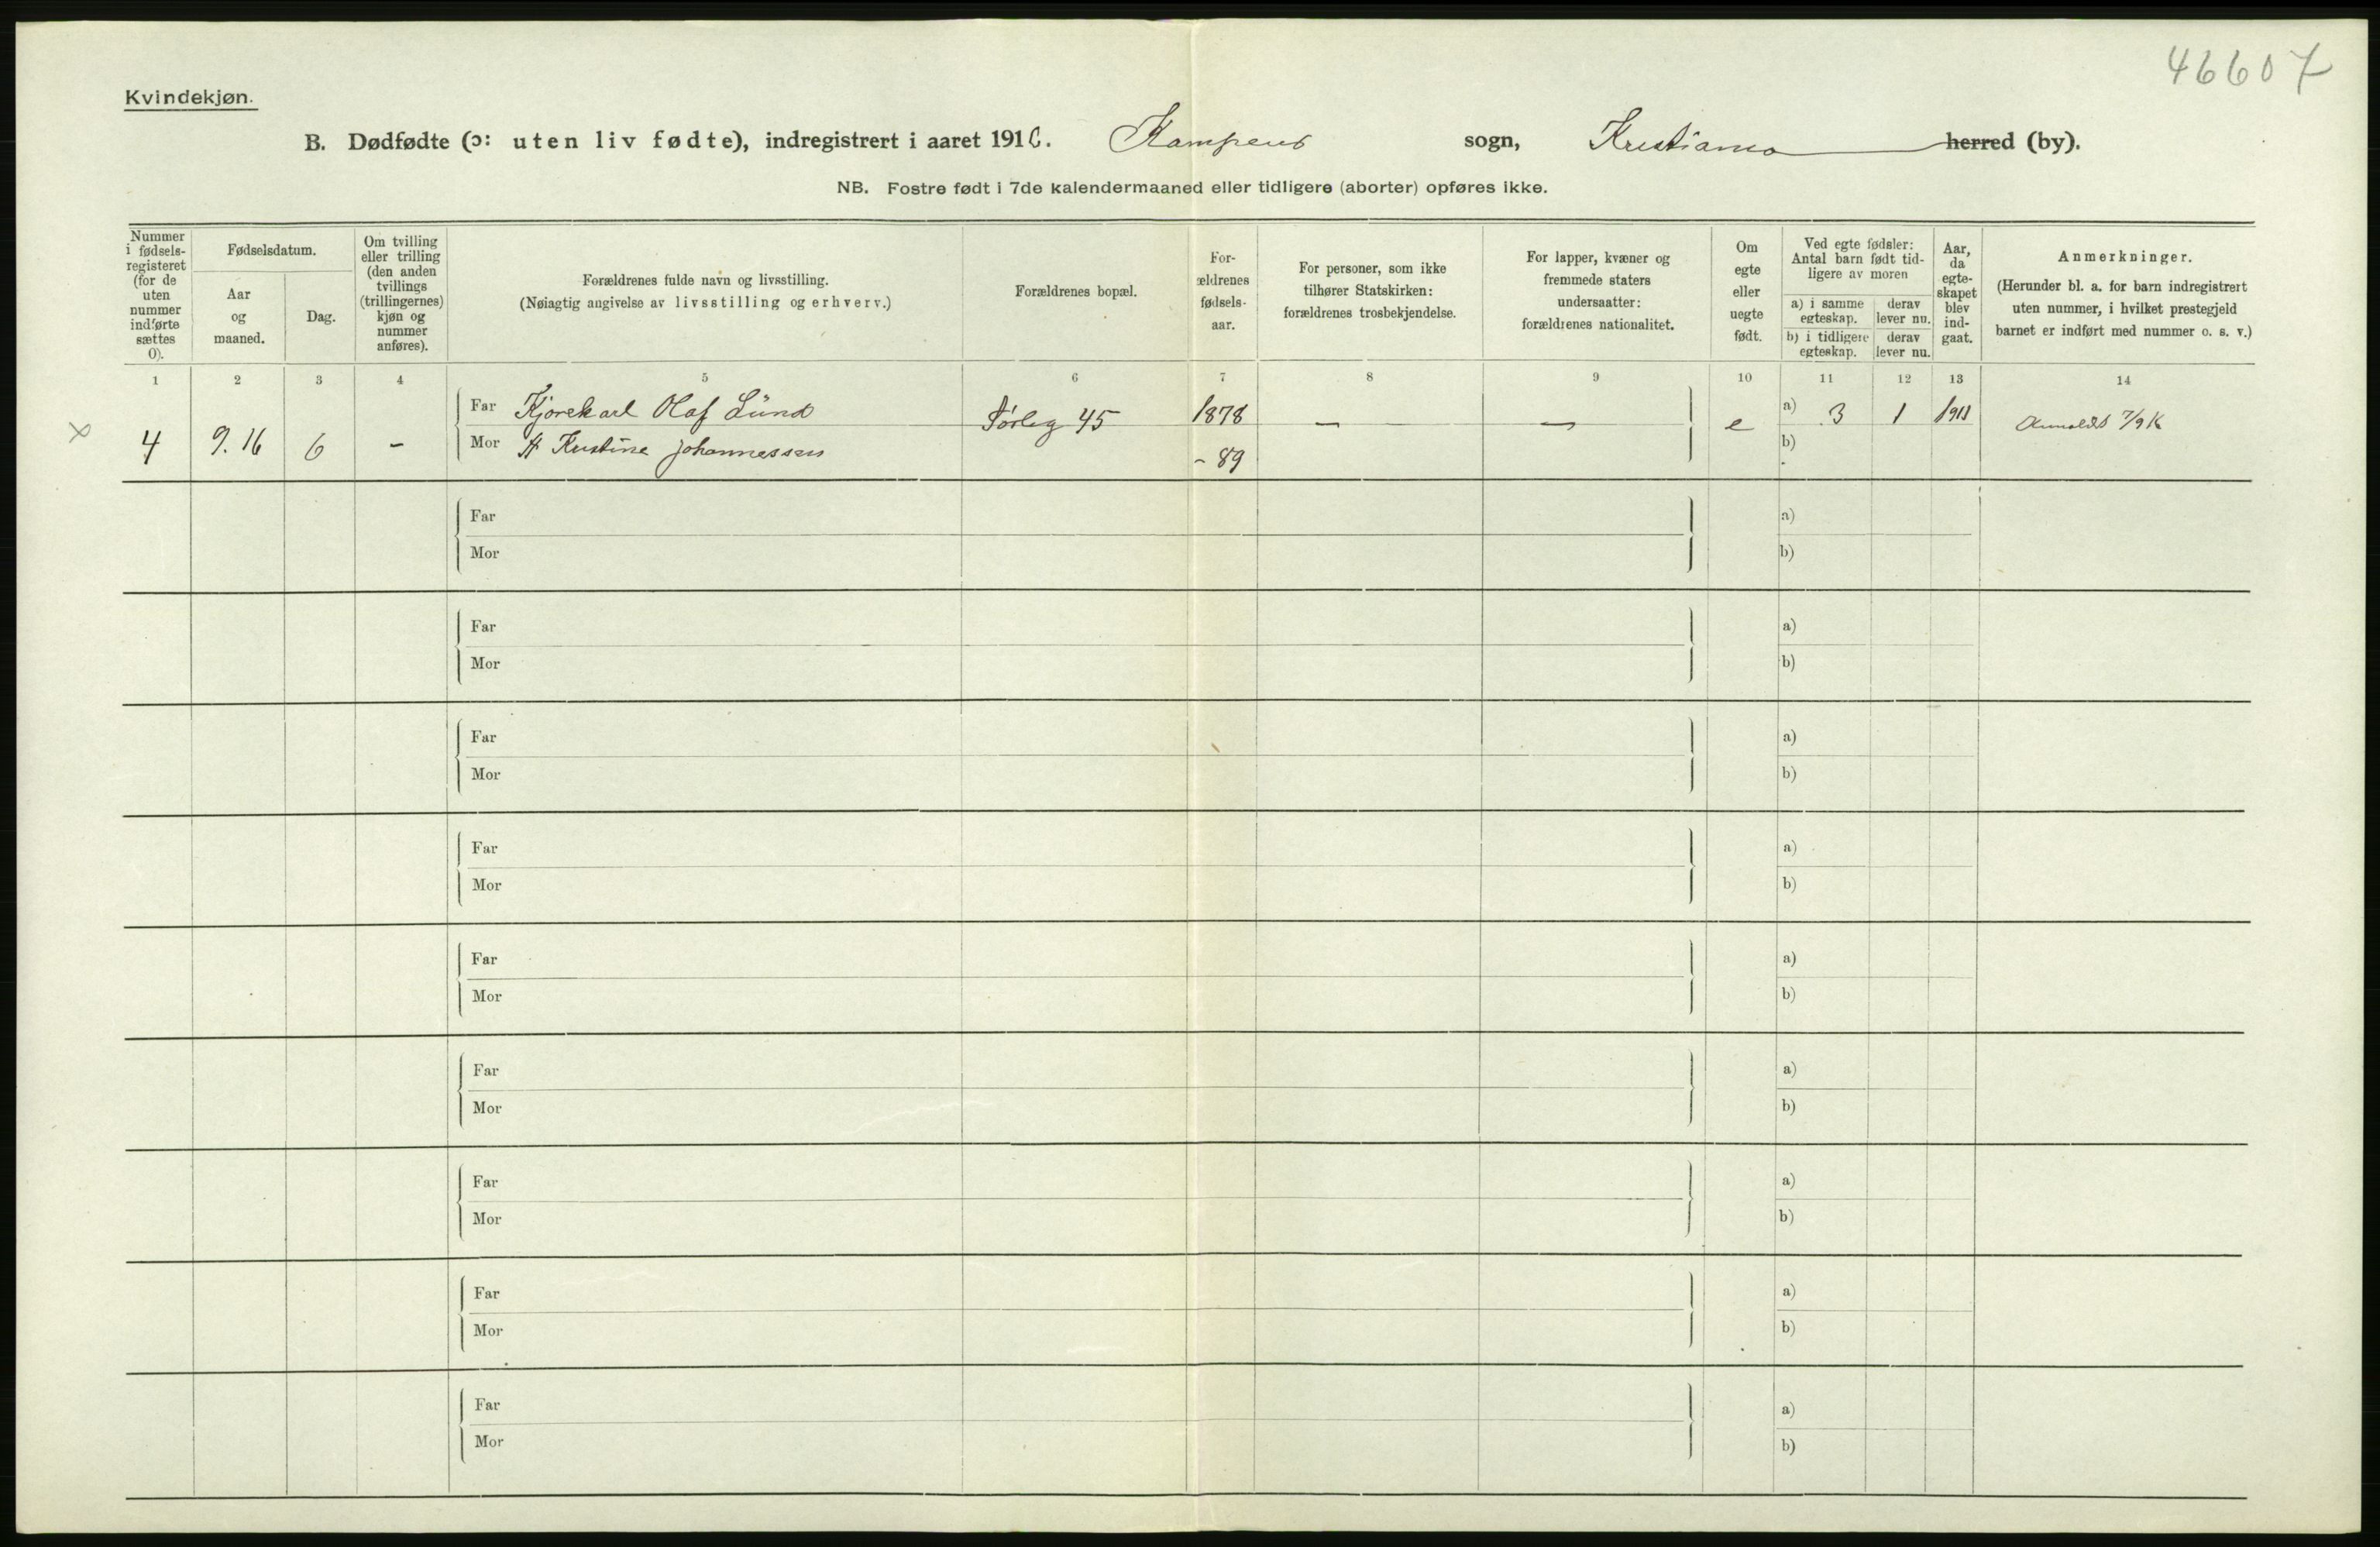 46607
Kvindekjøn.
B. Dødfødte (ɔ: uten liv fødte), indregistrert i aaret 1916. Kampens sogn, Kristiania herred (by).
NB. Fostre født i 7de kalendermaaned eller tidligere (aborter) opføres ikke.
Nummer i fødsels-registeret (for de uten nummer indførte sættes 0).
Fødselsdatum.
Aar og maaned.
Dag.
Om tvilling eller trilling (den anden tvillings (trillingernes) kjøn og nummer anføres).
Forældrenes fulde navn og livsstilling.
(Nøiagtig angivelse av livsstilling og erhverv.)
Forældrenes bopæl.
For-ældrenes fødsels-aar.
For personer, som ikke tilhører Statskirken: forældrenes trosbekjendelse.
For lapper, kvæner og fremmede staters undersaatter: forældrenes nationalitet.
Om egte eller uegte født.
Ved egte fødsler: Antal barn født tid-ligere av moren
a) i samme egteskap.
derav lever nu.
b) i tidligere egteskap.
derav lever nu.
Aar, da egte-skapet blev ind-gaat.
Anmerkninger.
(Herunder bl. a. for barn indregistrert uten nummer, i hvilket prestegjeld barnet er indført med nummer o. s. v.)
1 2 3 4 5 6 7 8 9 10 11 12 13 14
x 4 9. 16 6 –
Far Kjørekarl Olaf Lund 45 1878 — — e a) 3 1 1911 7/9 16
Mor H Kristine Johannessen - 89 b)
Far a)
Mor b)
Far a)
Mor b)
Far a)
Mor b)
Far a)
Mor b)
Far a)
Mor b)
Far a)
Mor b)
Far a)
Mor b)
Far a)
Mor b)
Far a)
Mor b)